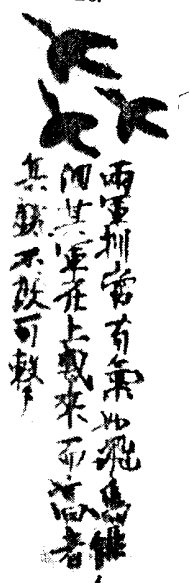 兩軍相當有氣如飛鳥徘
徊其軍在上戰來而高者
其不可擊